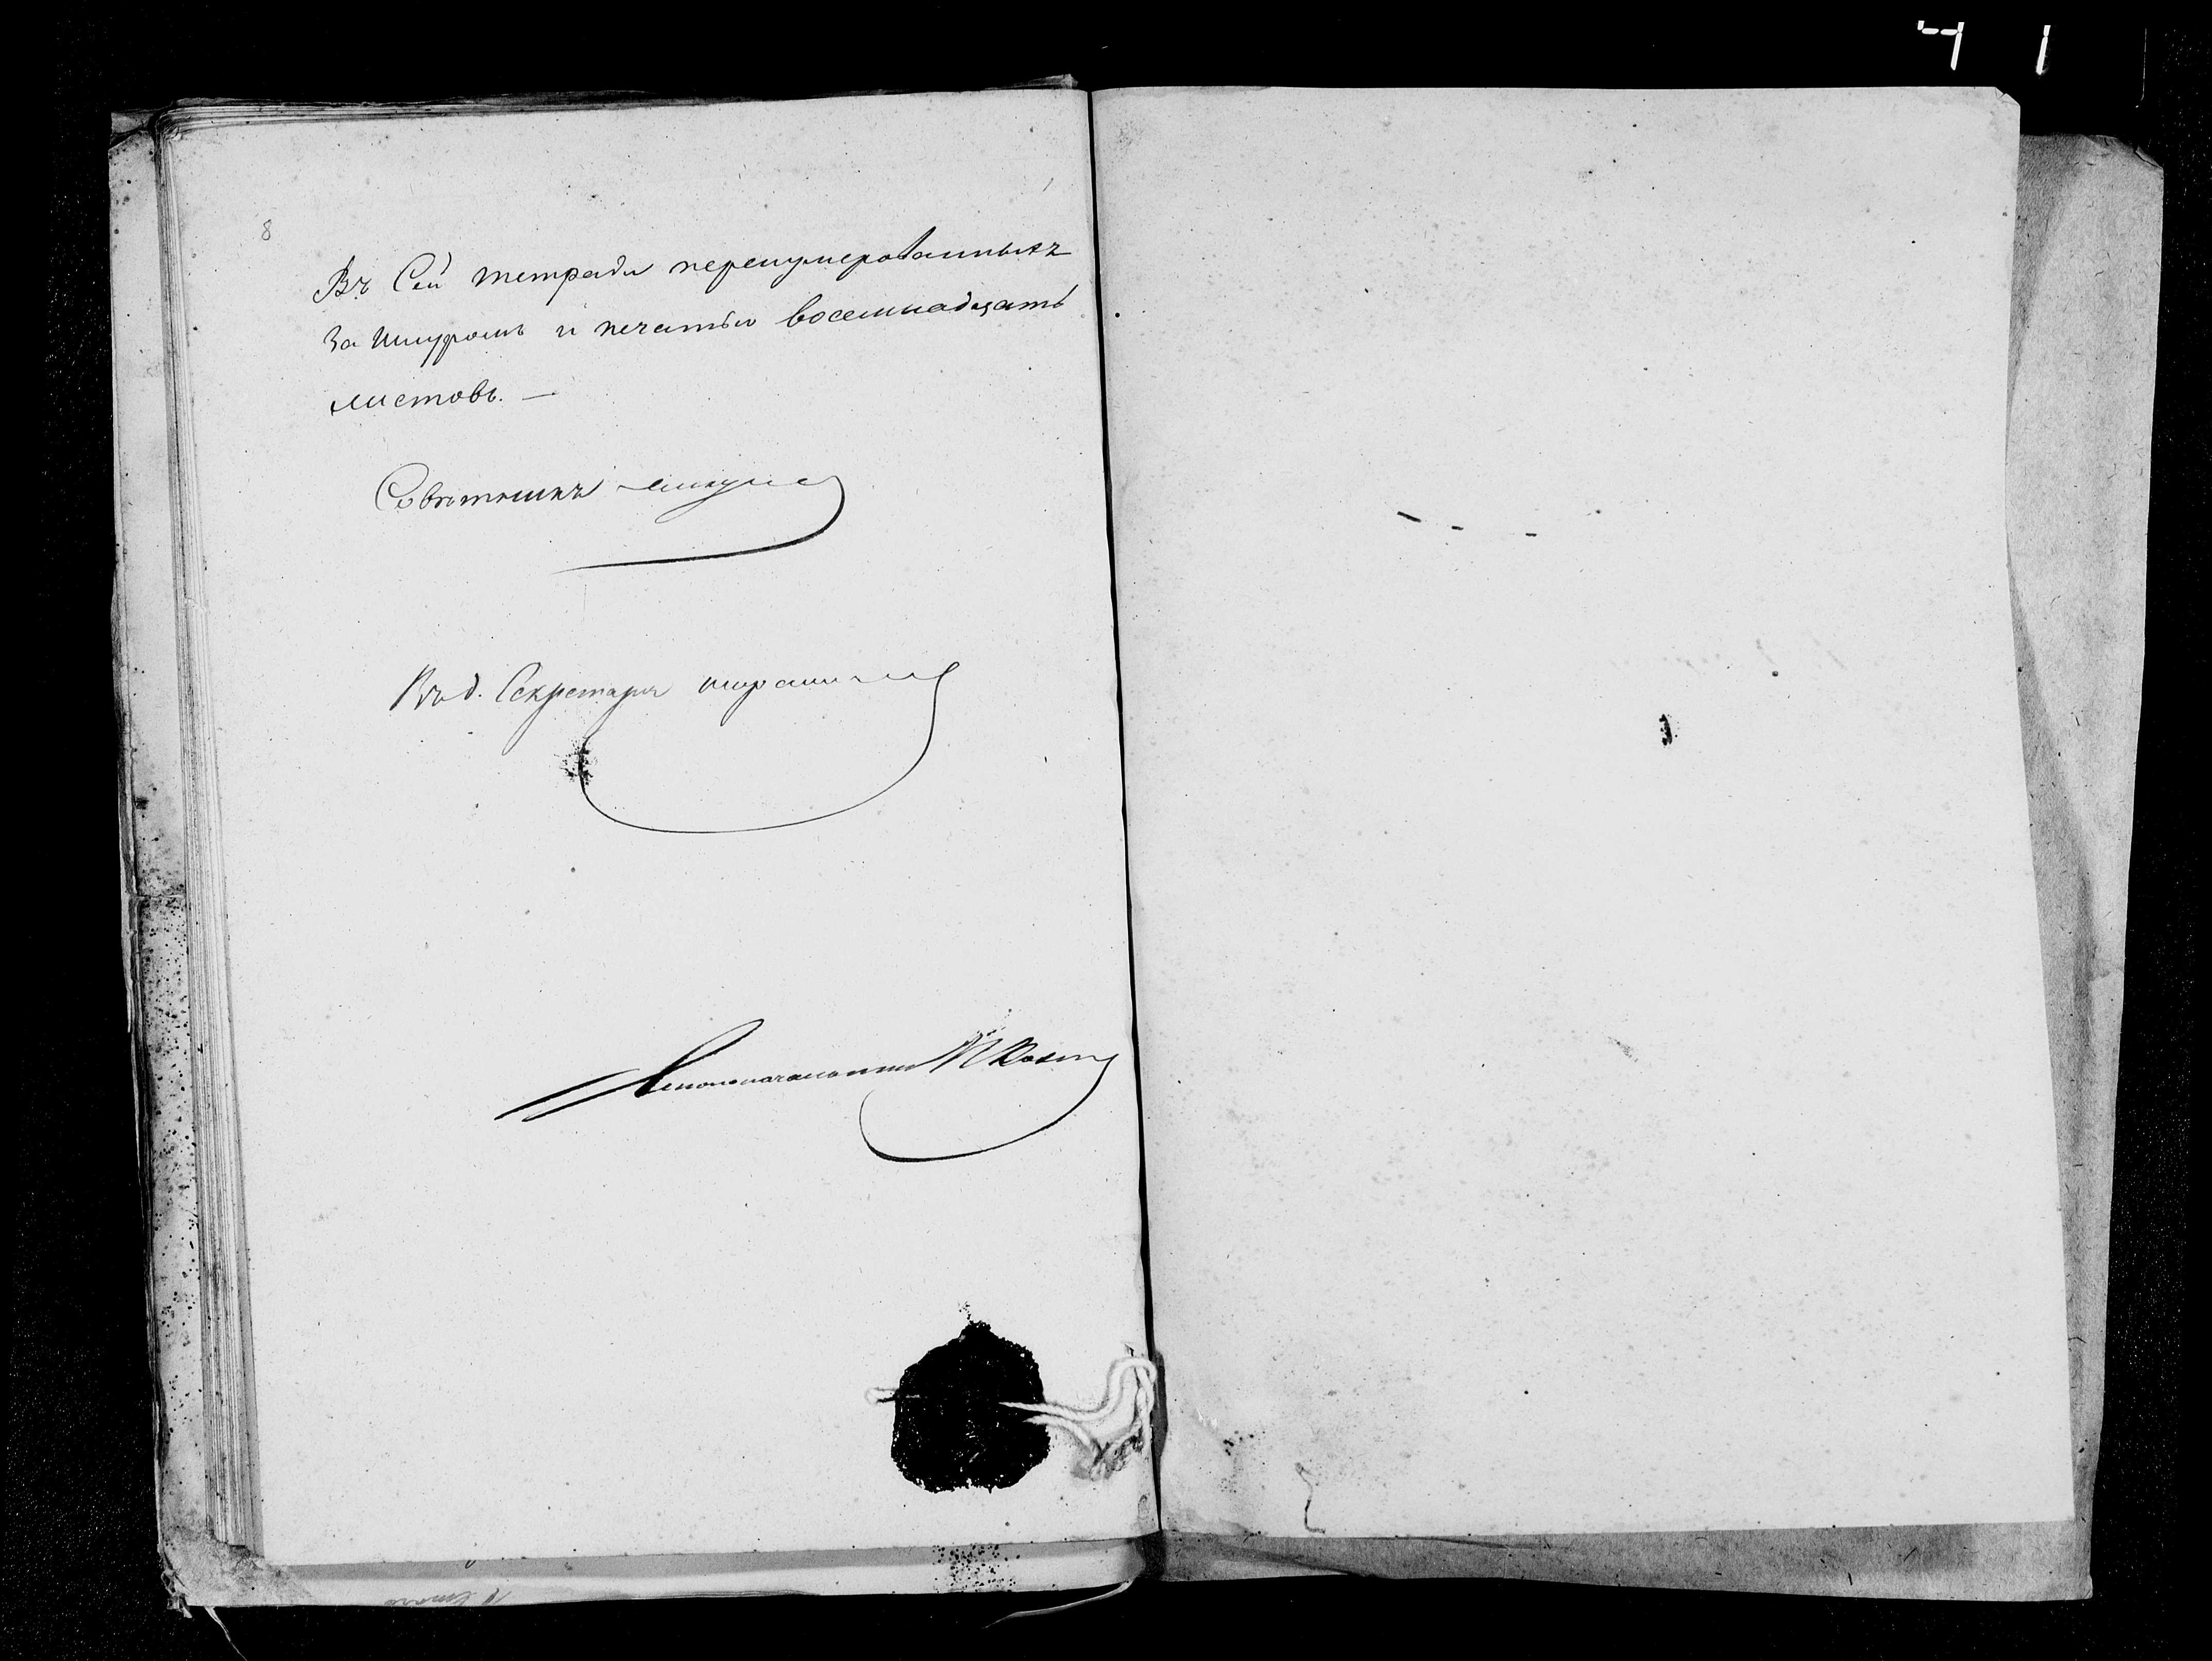 8
Въ Сей тетради перенумерованныхъ
за шнуромъ и печатью восемнадцать
листовъ. —
Совѣтникъ
Въ д. Секретаря
Столоначальникъ